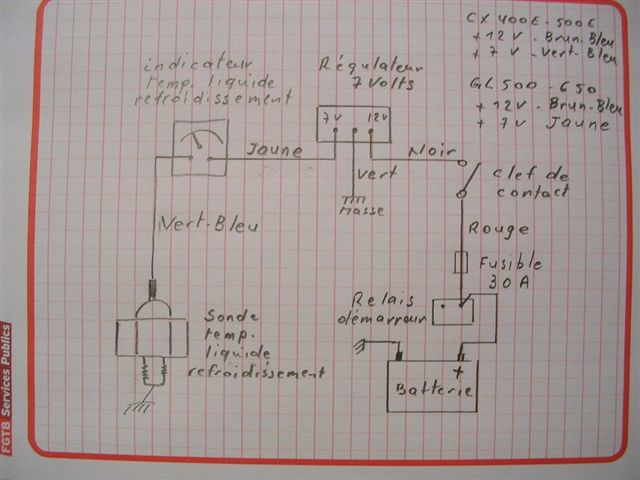 CX 400E-500E
+ 12V - Brun-Bleu
+ 7V - Vert-Bleu
GL 500 - 650
+ 12V - Brun-Bleu
+ 7V Jaune
indicateur
temp. liquide
refroidissement
Régulateur
7 Volts
7V 12V
Jaune
Noir
Vert
Masse
clef de
contact
Vert-Bleu
Rouge
Fusible
30A
Relais
démarreur
Sonde
temp.
liquide
refroidissement
+
Batterie
FGTB Services Publics